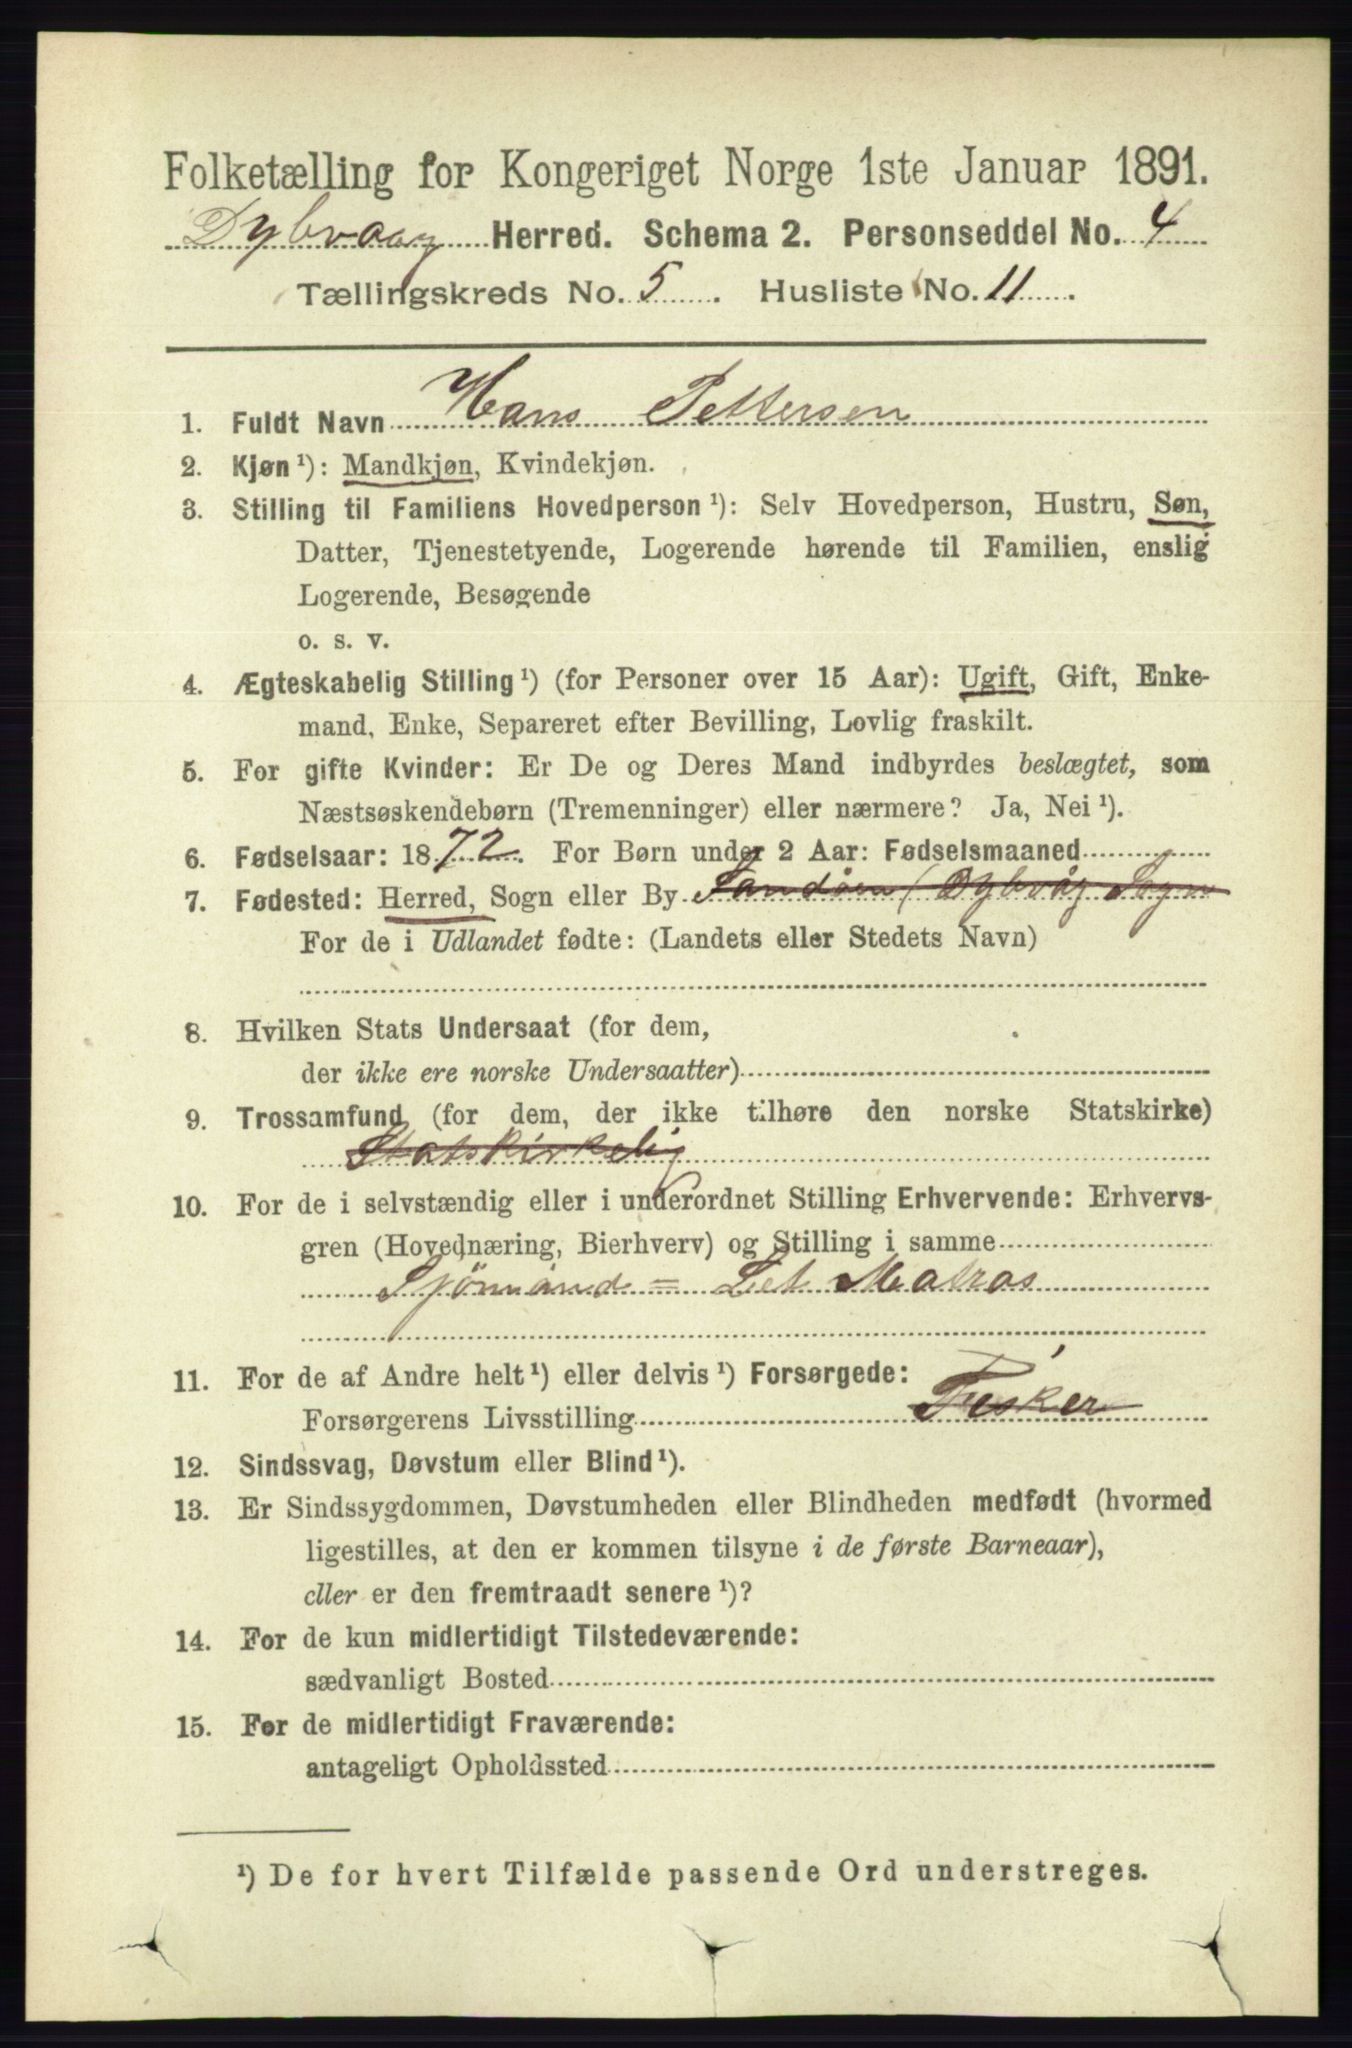 Folketælling for Kongeriget Norge 1ste Januar 1891.
Dybvaag Herred. Schema 2. Personseddel No. 4
Tællingskreds No. 5. Husliste No. 11.
1. Fuldt Navn Hans Pettersen
2. Kjøn ¹): Mandkjøn, Kvindekjøn.
3. Stilling til Familiens Hovedperson ¹): Selv Hovedperson, Hustru, Søn,
Datter, Tjenestetyende, Logerende hørende til Familien, enslig
Logerende, Besøgende
o. s. v.
4. Ægteskabelig Stilling ¹) (for Personer over 15 Aar): Ugift, Gift, Enke-
mand, Enke, Separeret efter Bevilling, Lovlig fraskilt.
5. For gifte Kvinder: Er De og Deres Mand indbyrdes beslægtet, som
Næstsøskendebørn (Tremenninger) eller nærmere? Ja, Nei ¹).
6. Fødselsaar: 1872. For Børn under 2 Aar: Fødselsmaaned
7. Fødested: Herred, Sogn eller By Sandöen (Dybvåg Sogn
For de i Udlandet fødte: (Landets eller Stedets Navn)
8. Hvilken Stats Undersaat (for dem,
der ikke ere norske Undersaatter)
9. Trossamfund (for dem, der ikke tilhøre den norske Statskirke)
Statskirkelig
10. For de i selvstændig eller i underordnet Stilling Erhvervende: Erhvervs-
gren (Hovednæring, Bierhverv) og Stilling i samme
Sjömand = Let Matros
11. For de af Andre helt ¹) eller delvis ¹) Forsørgede:
Forsørgerens Livsstilling Fisker
12. Sindssvag, Døvstum eller Blind ¹).
13. Er Sindssygdommen, Døvstumheden eller Blindheden medfødt (hvormed
ligestilles, at den er kommen tilsyne i de første Barneaar),
eller er den fremtraadt senere ¹)?
14. For de kun midlertidigt Tilstedeværende:
sædvanligt Bosted
15. For de midlertidigt Fraværende:
antageligt Opholdssted
¹) De for hvert Tilfælde passende Ord understreges.